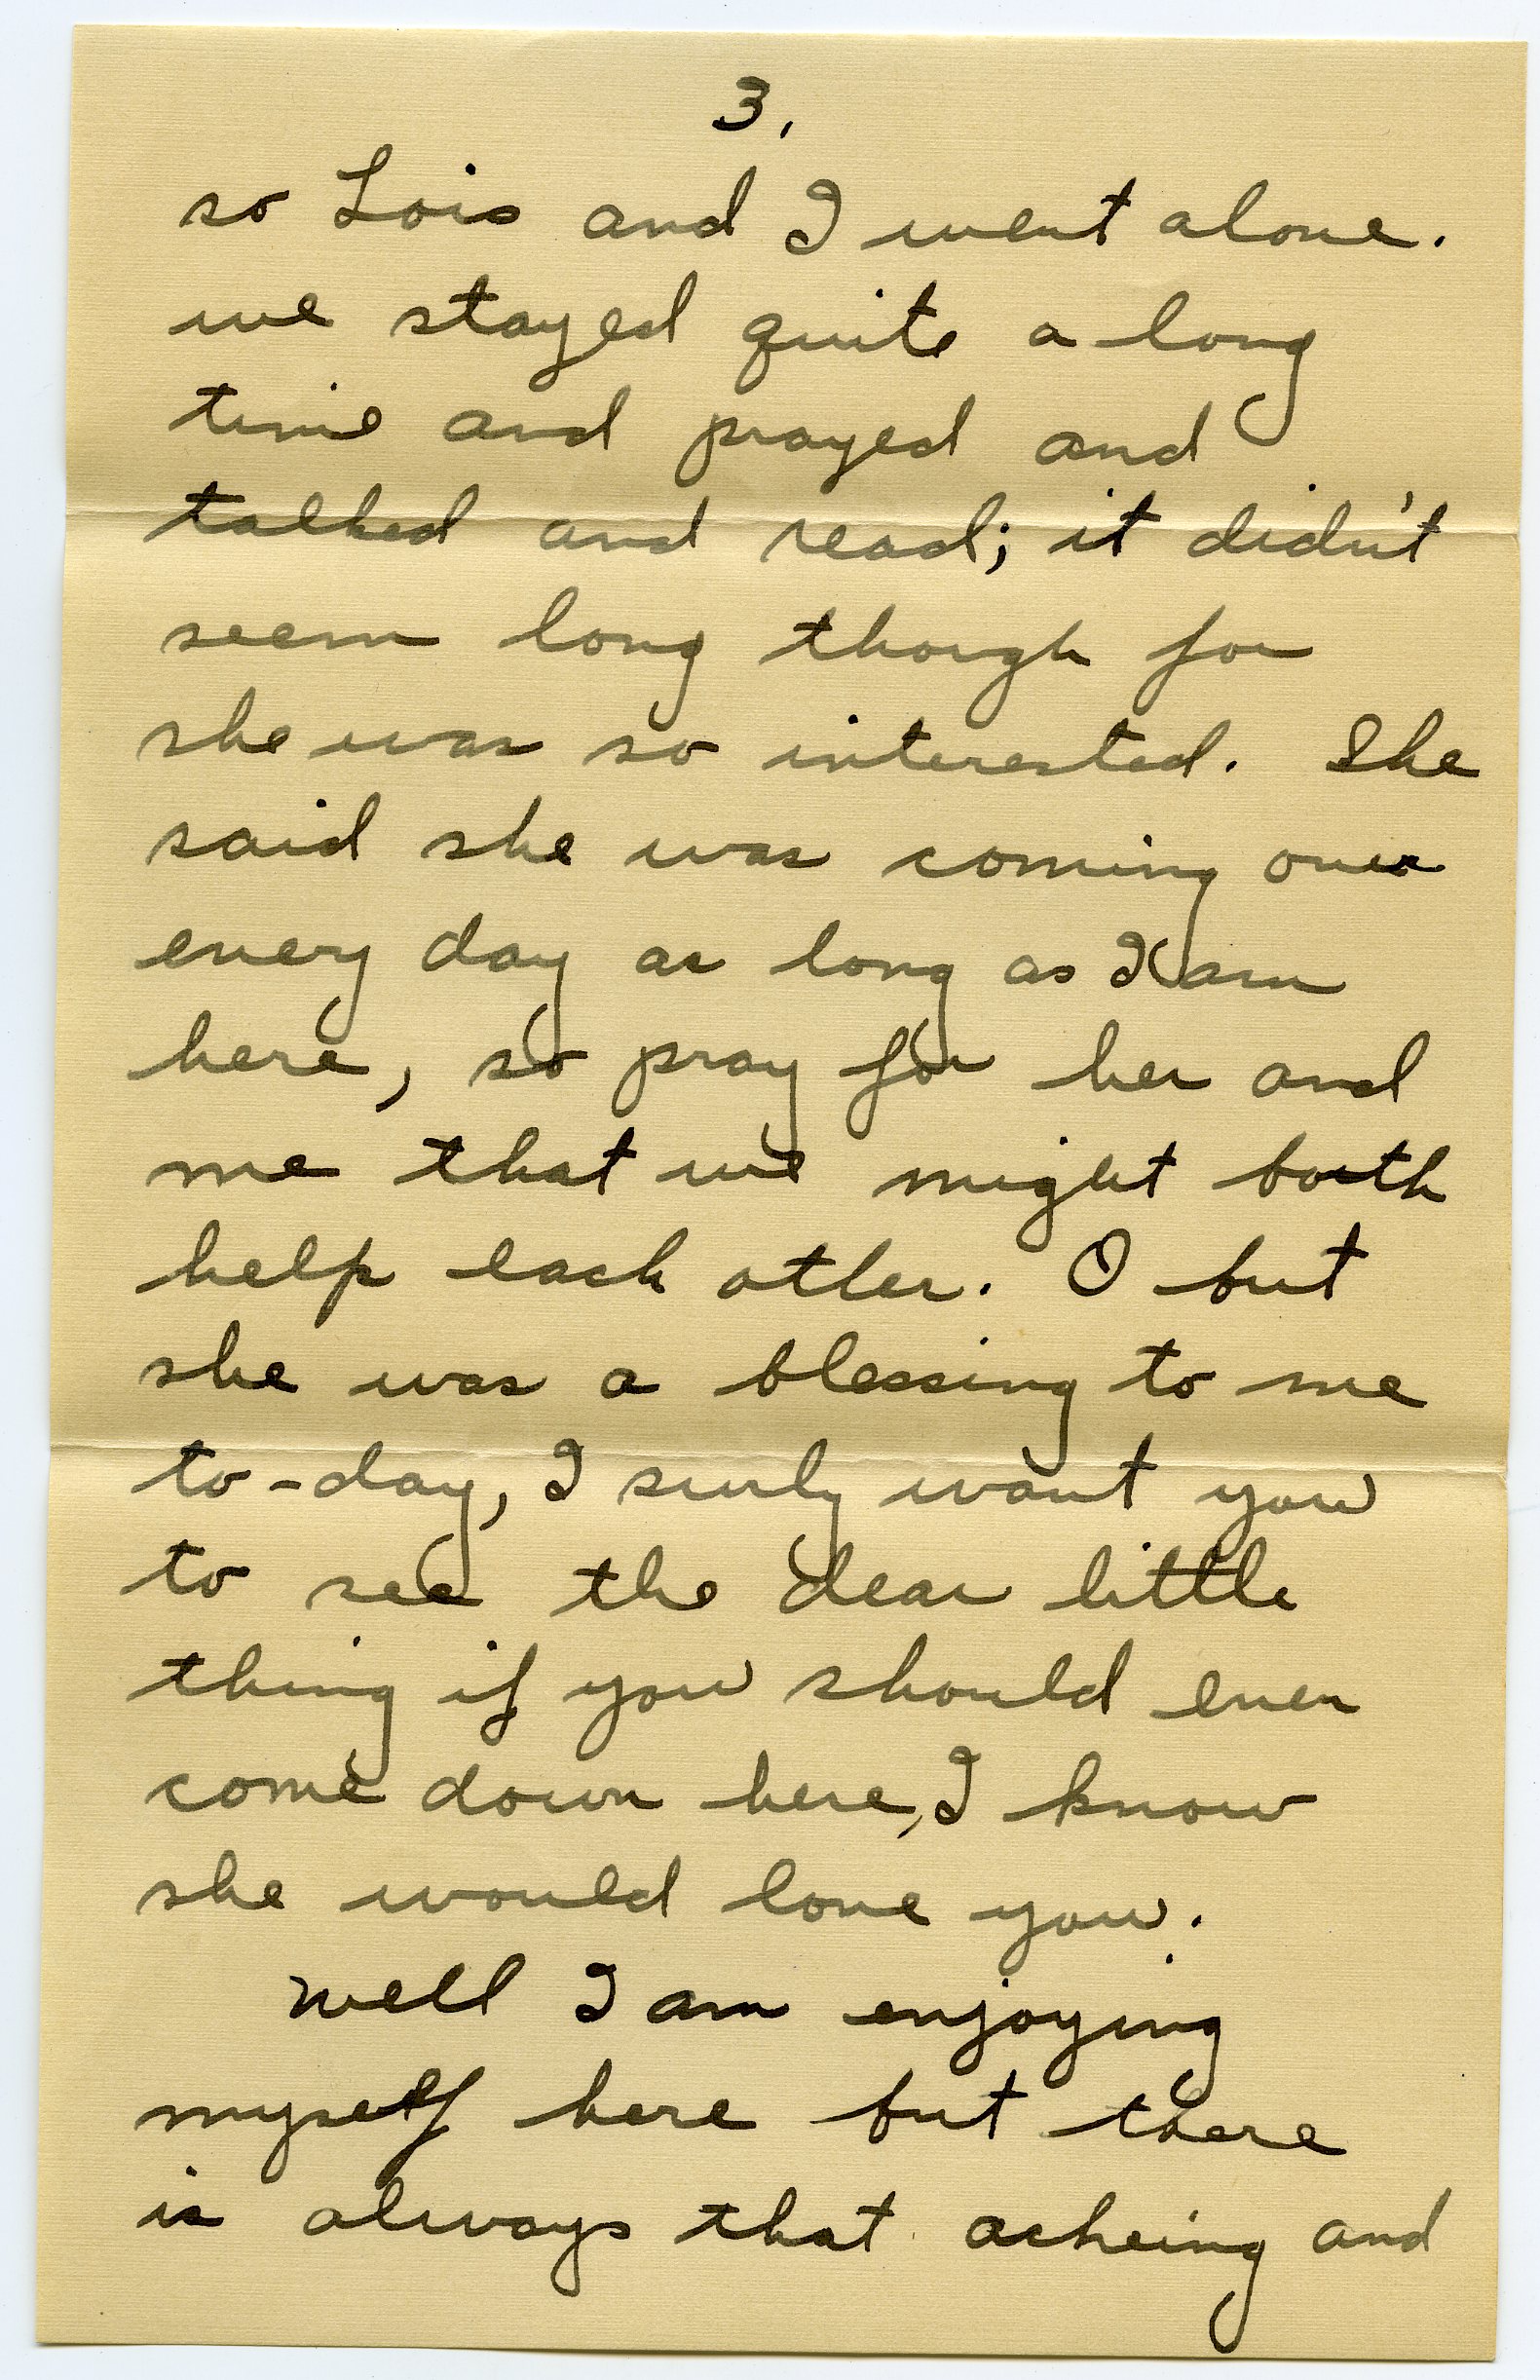 3,
so Lois and I went alone.
we stayed quite a long
time and prayed and
talked and read; it didn't
seem long though for
she was so interested. She
said she was coming over
every day as long as I am
here, so pray for her and
me that we might both
help each other. O but
she was a blessing to me
to-day, I surly want you
to see the dear little
thing if you should ever
come down here, I know
she would love you.
Well I am enjoying
myself here but there
is always that acheing and